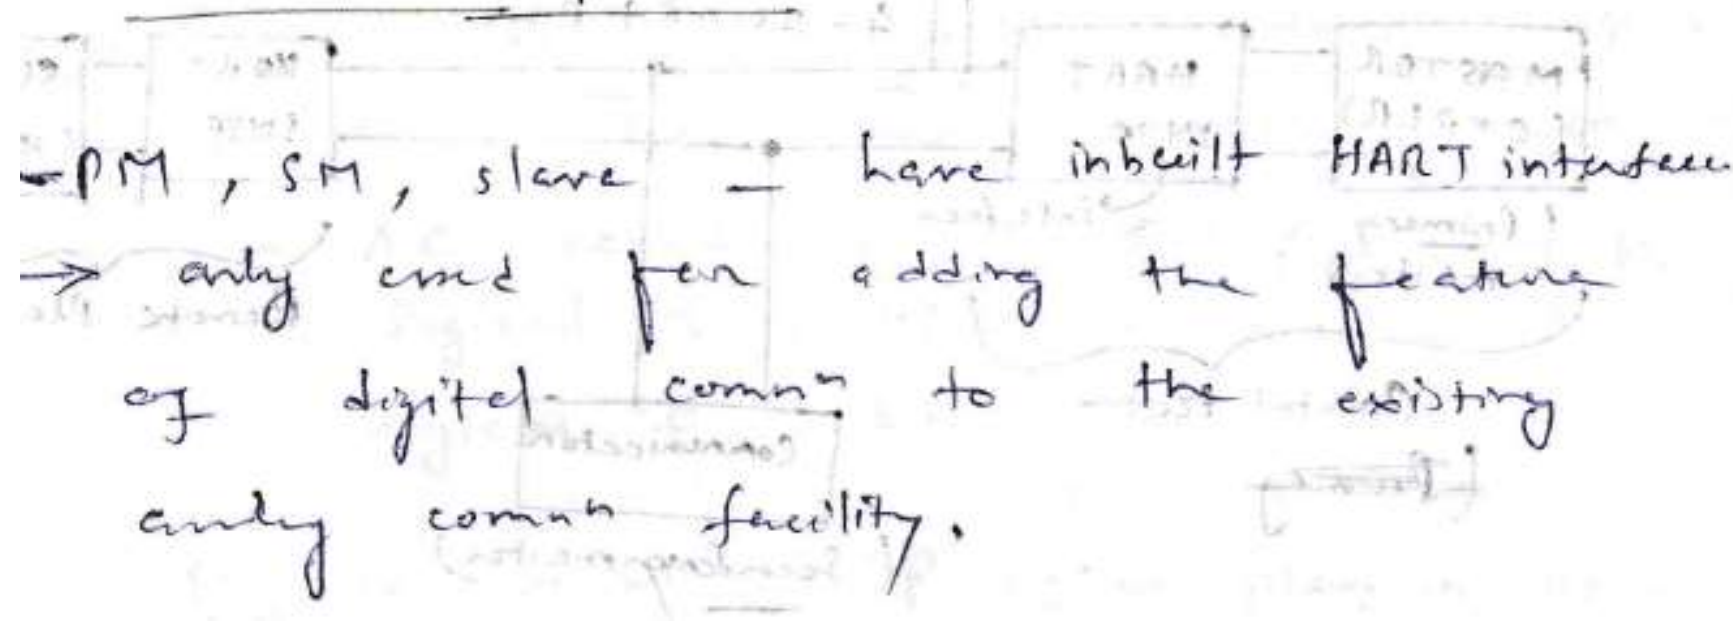 PM, SM, slave – have inbuilt HART interface
→ only used for adding the feature
of digital commⁿ to the existing
analog commⁿ facility.